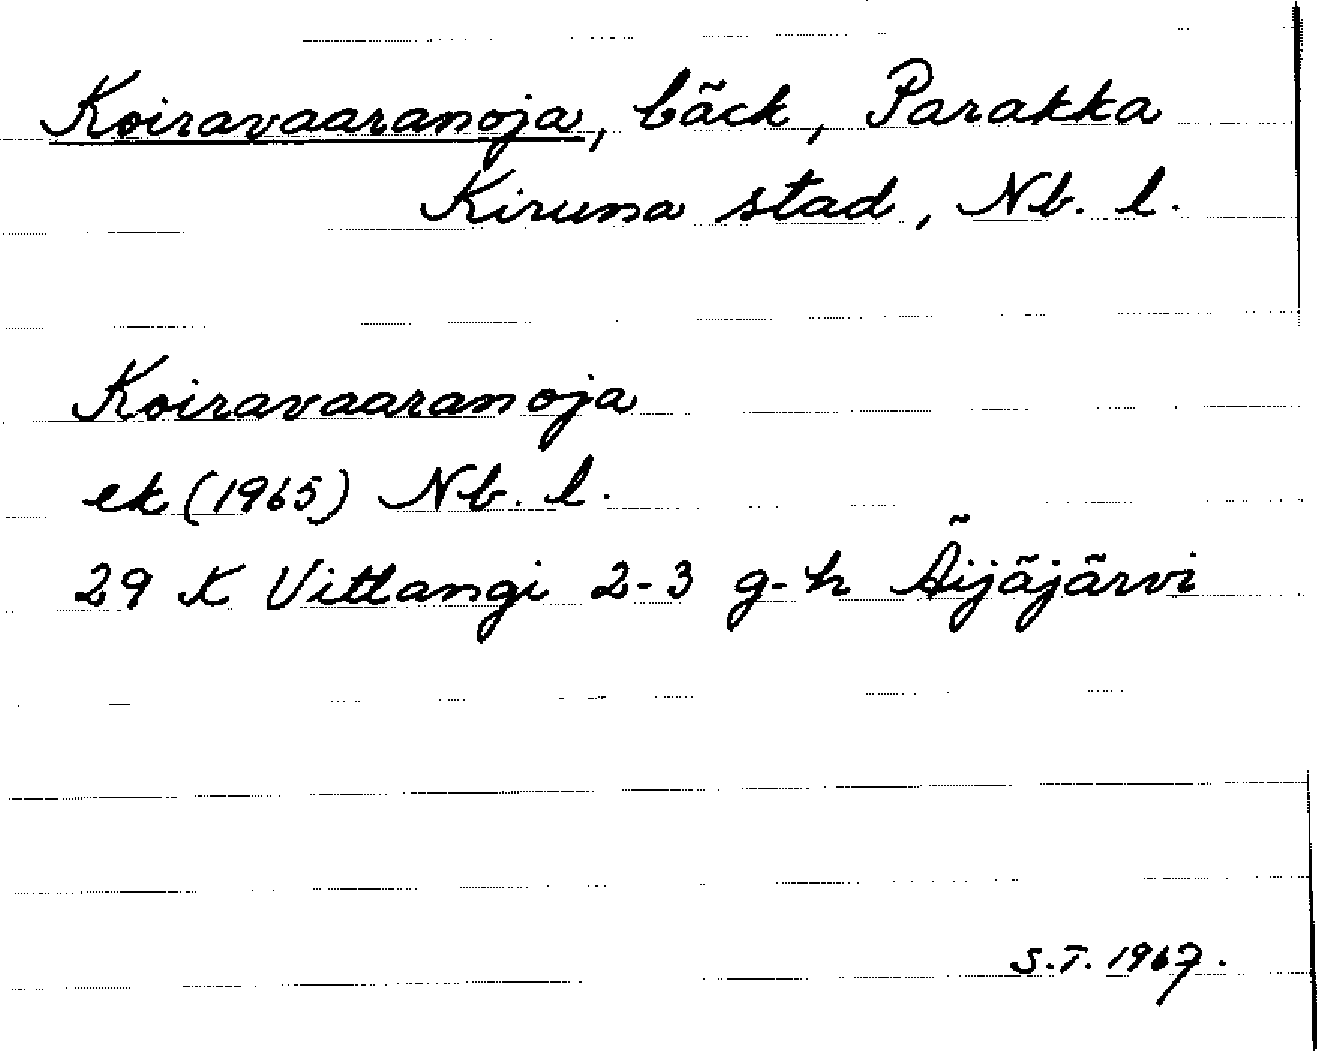 Koiravaaranoja, bäck, Parakka
Kiruna stad, Nb. l.
Koiravaaranoja
ek (1965) Nb. l.
29 K Vittangi 2-3 g-h Äijäjärvi
S.T. 1967.